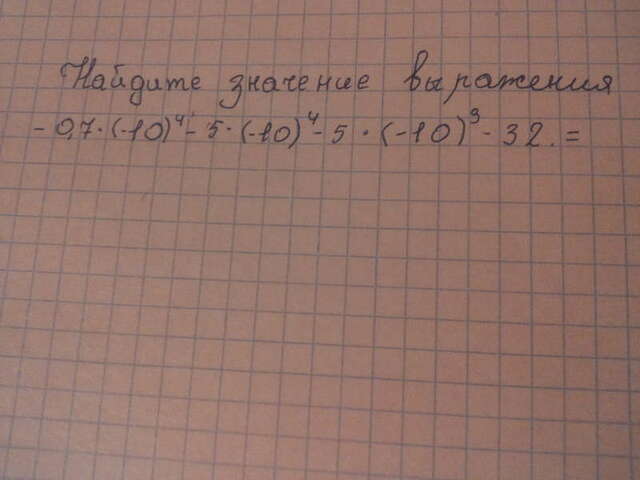 Найдите значение выражения
- 0,7·(-10)⁴- 5·(-10)⁴- 5·(-10)³- 32.=